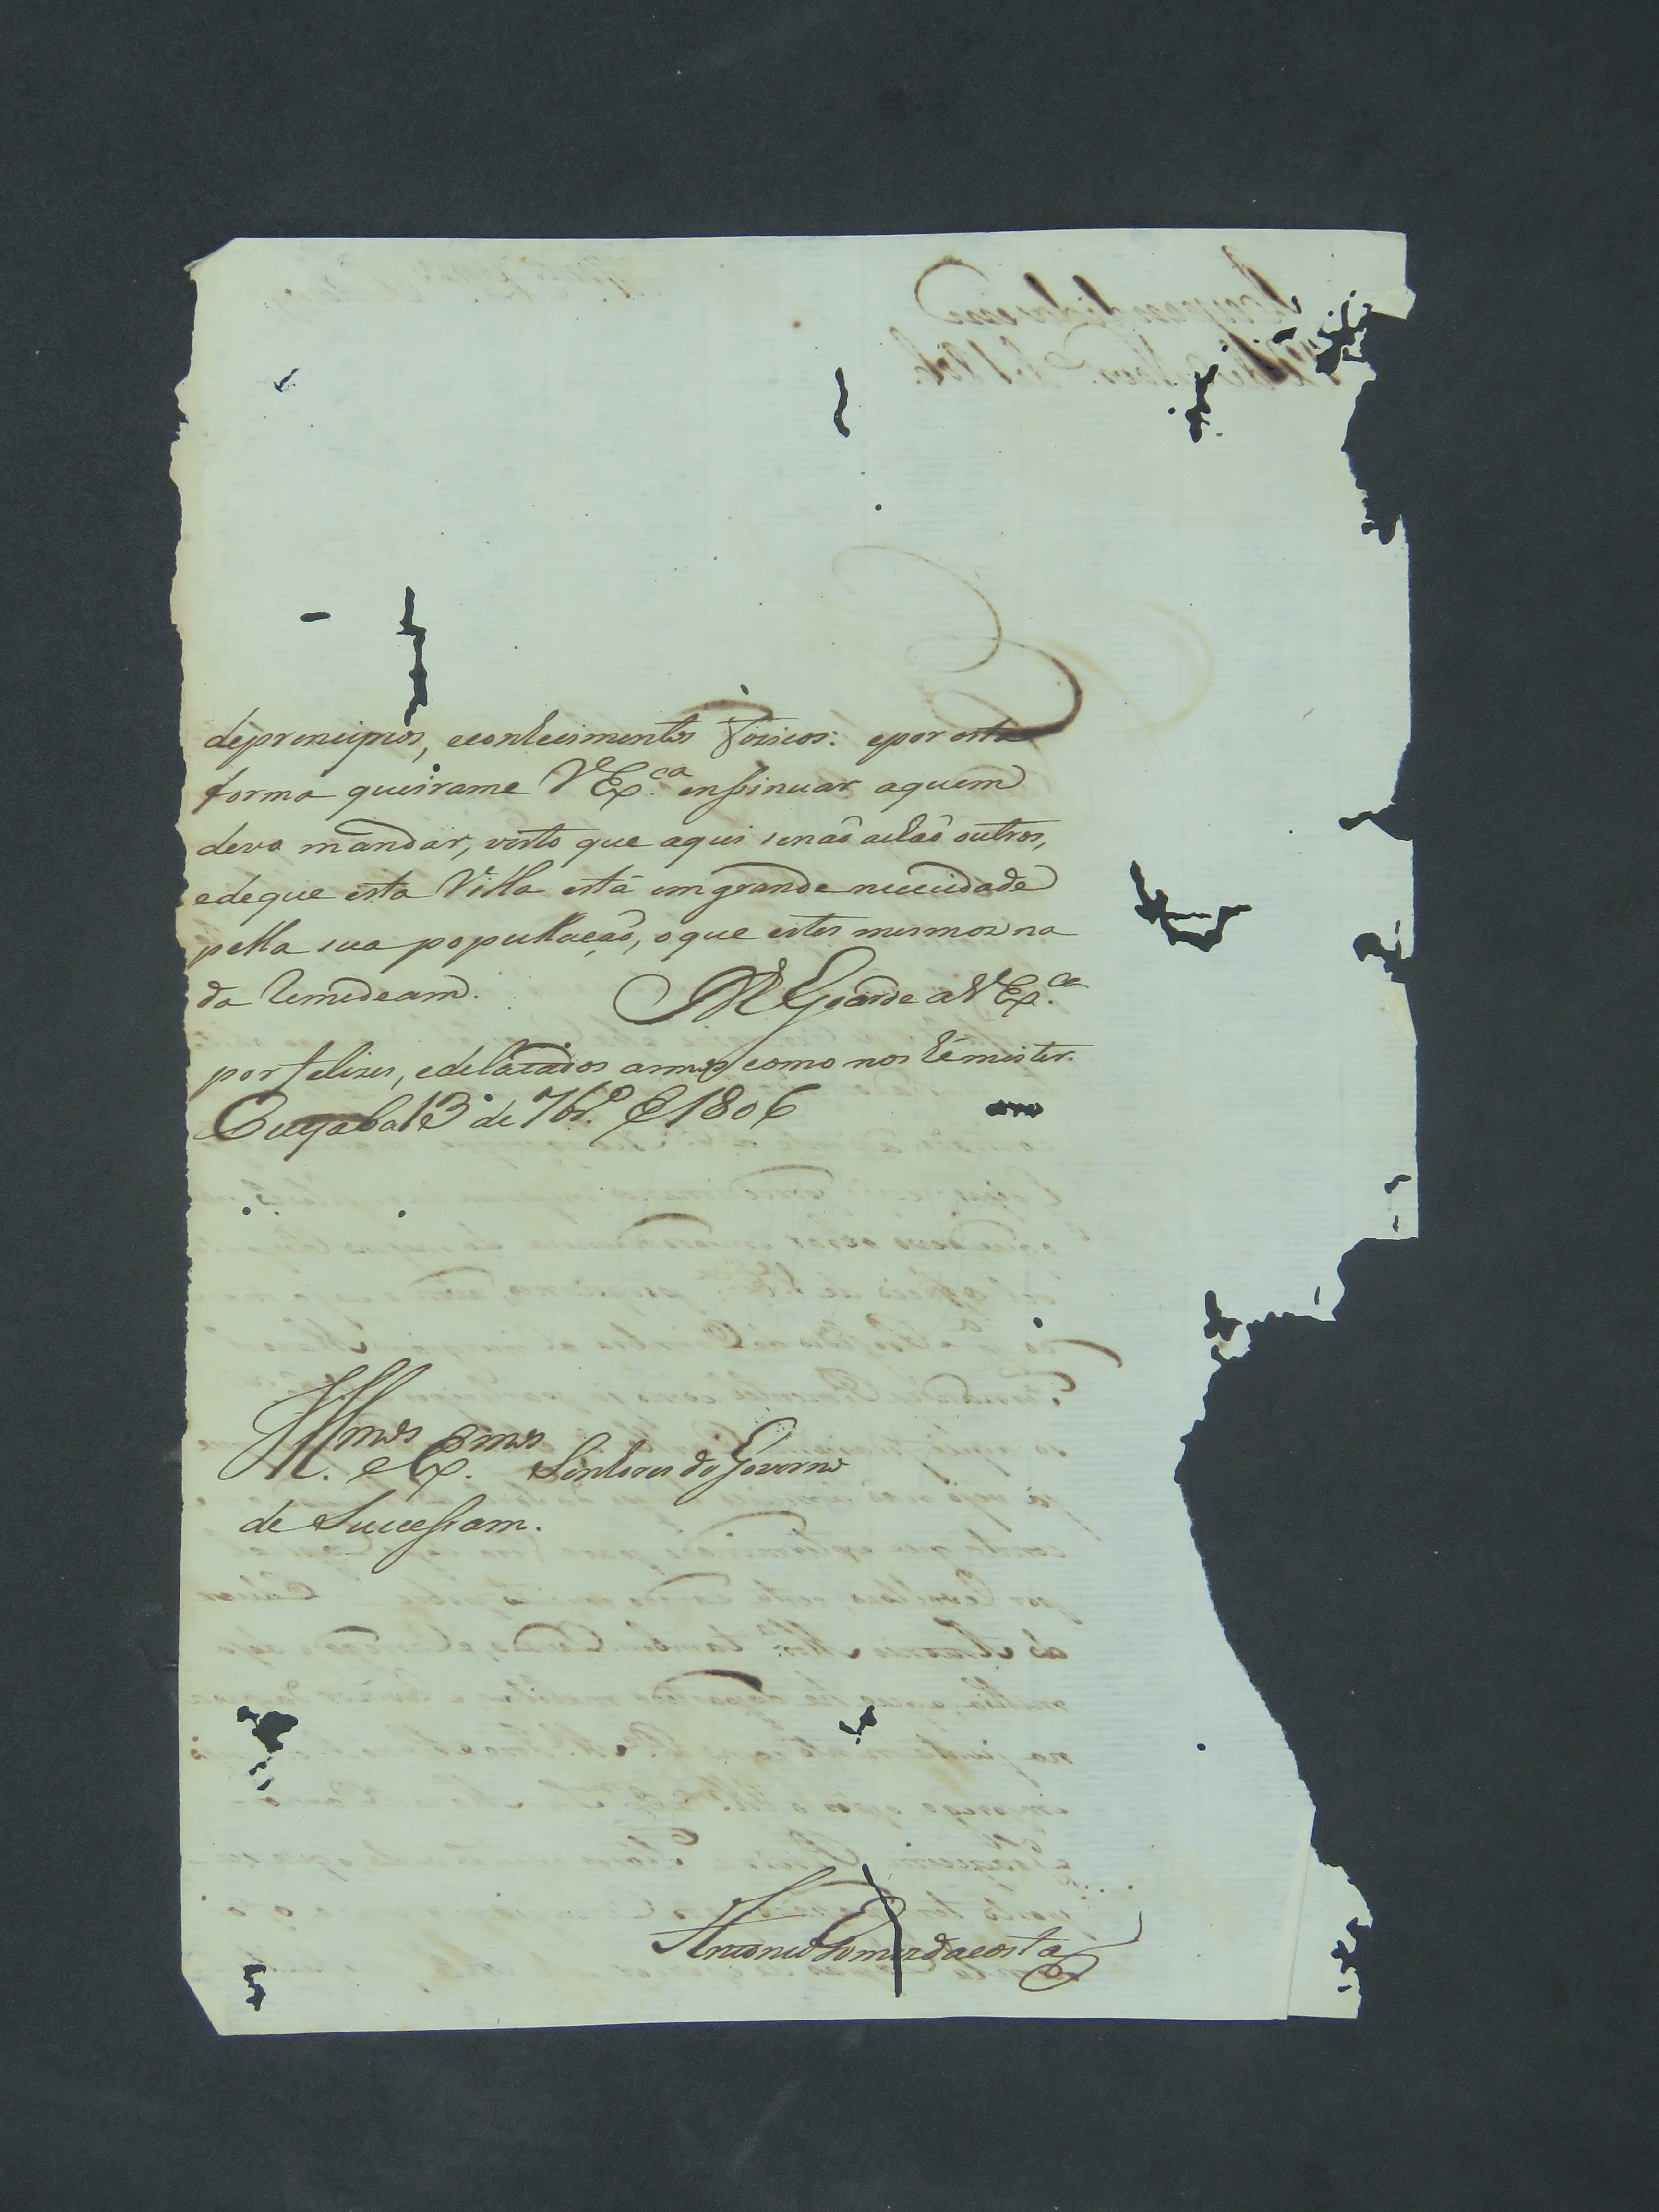 deprencipios, econhecimentos Fizicos: epor esta
forma queirame V Ex.ca enssinuar aquem
deva mandar, visto que aqui senaõ achaõ outros,
edeque esta Villa está em grande necicidade
pella sua populaçaõ, oque estes mesmos na
da Remedeam. D.s Guarde a V Ex.ca
por felizes, edelatados annos como nos hé mister.
Cuyaba 13 de 7br.o de 1806
Ill.mos e Ex.mos Senhores do Governo
de Sucessam.
Antonio Gomes da Costa